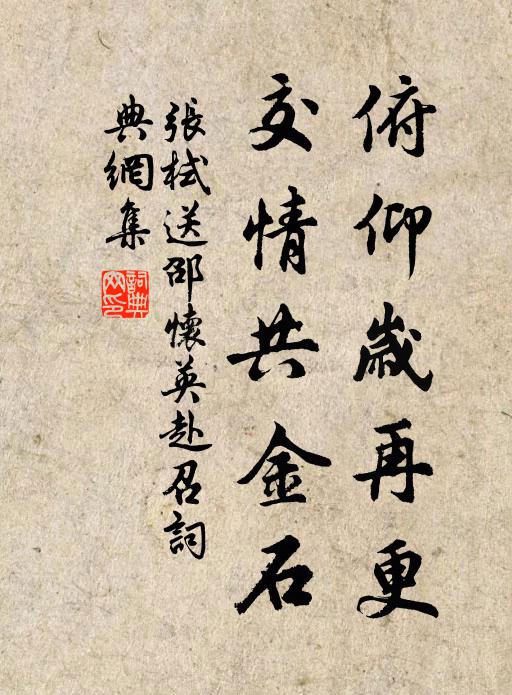 俯仰歲再更
交情共金石
張栻送邵懷英赴召詞
典網集
詞典網印